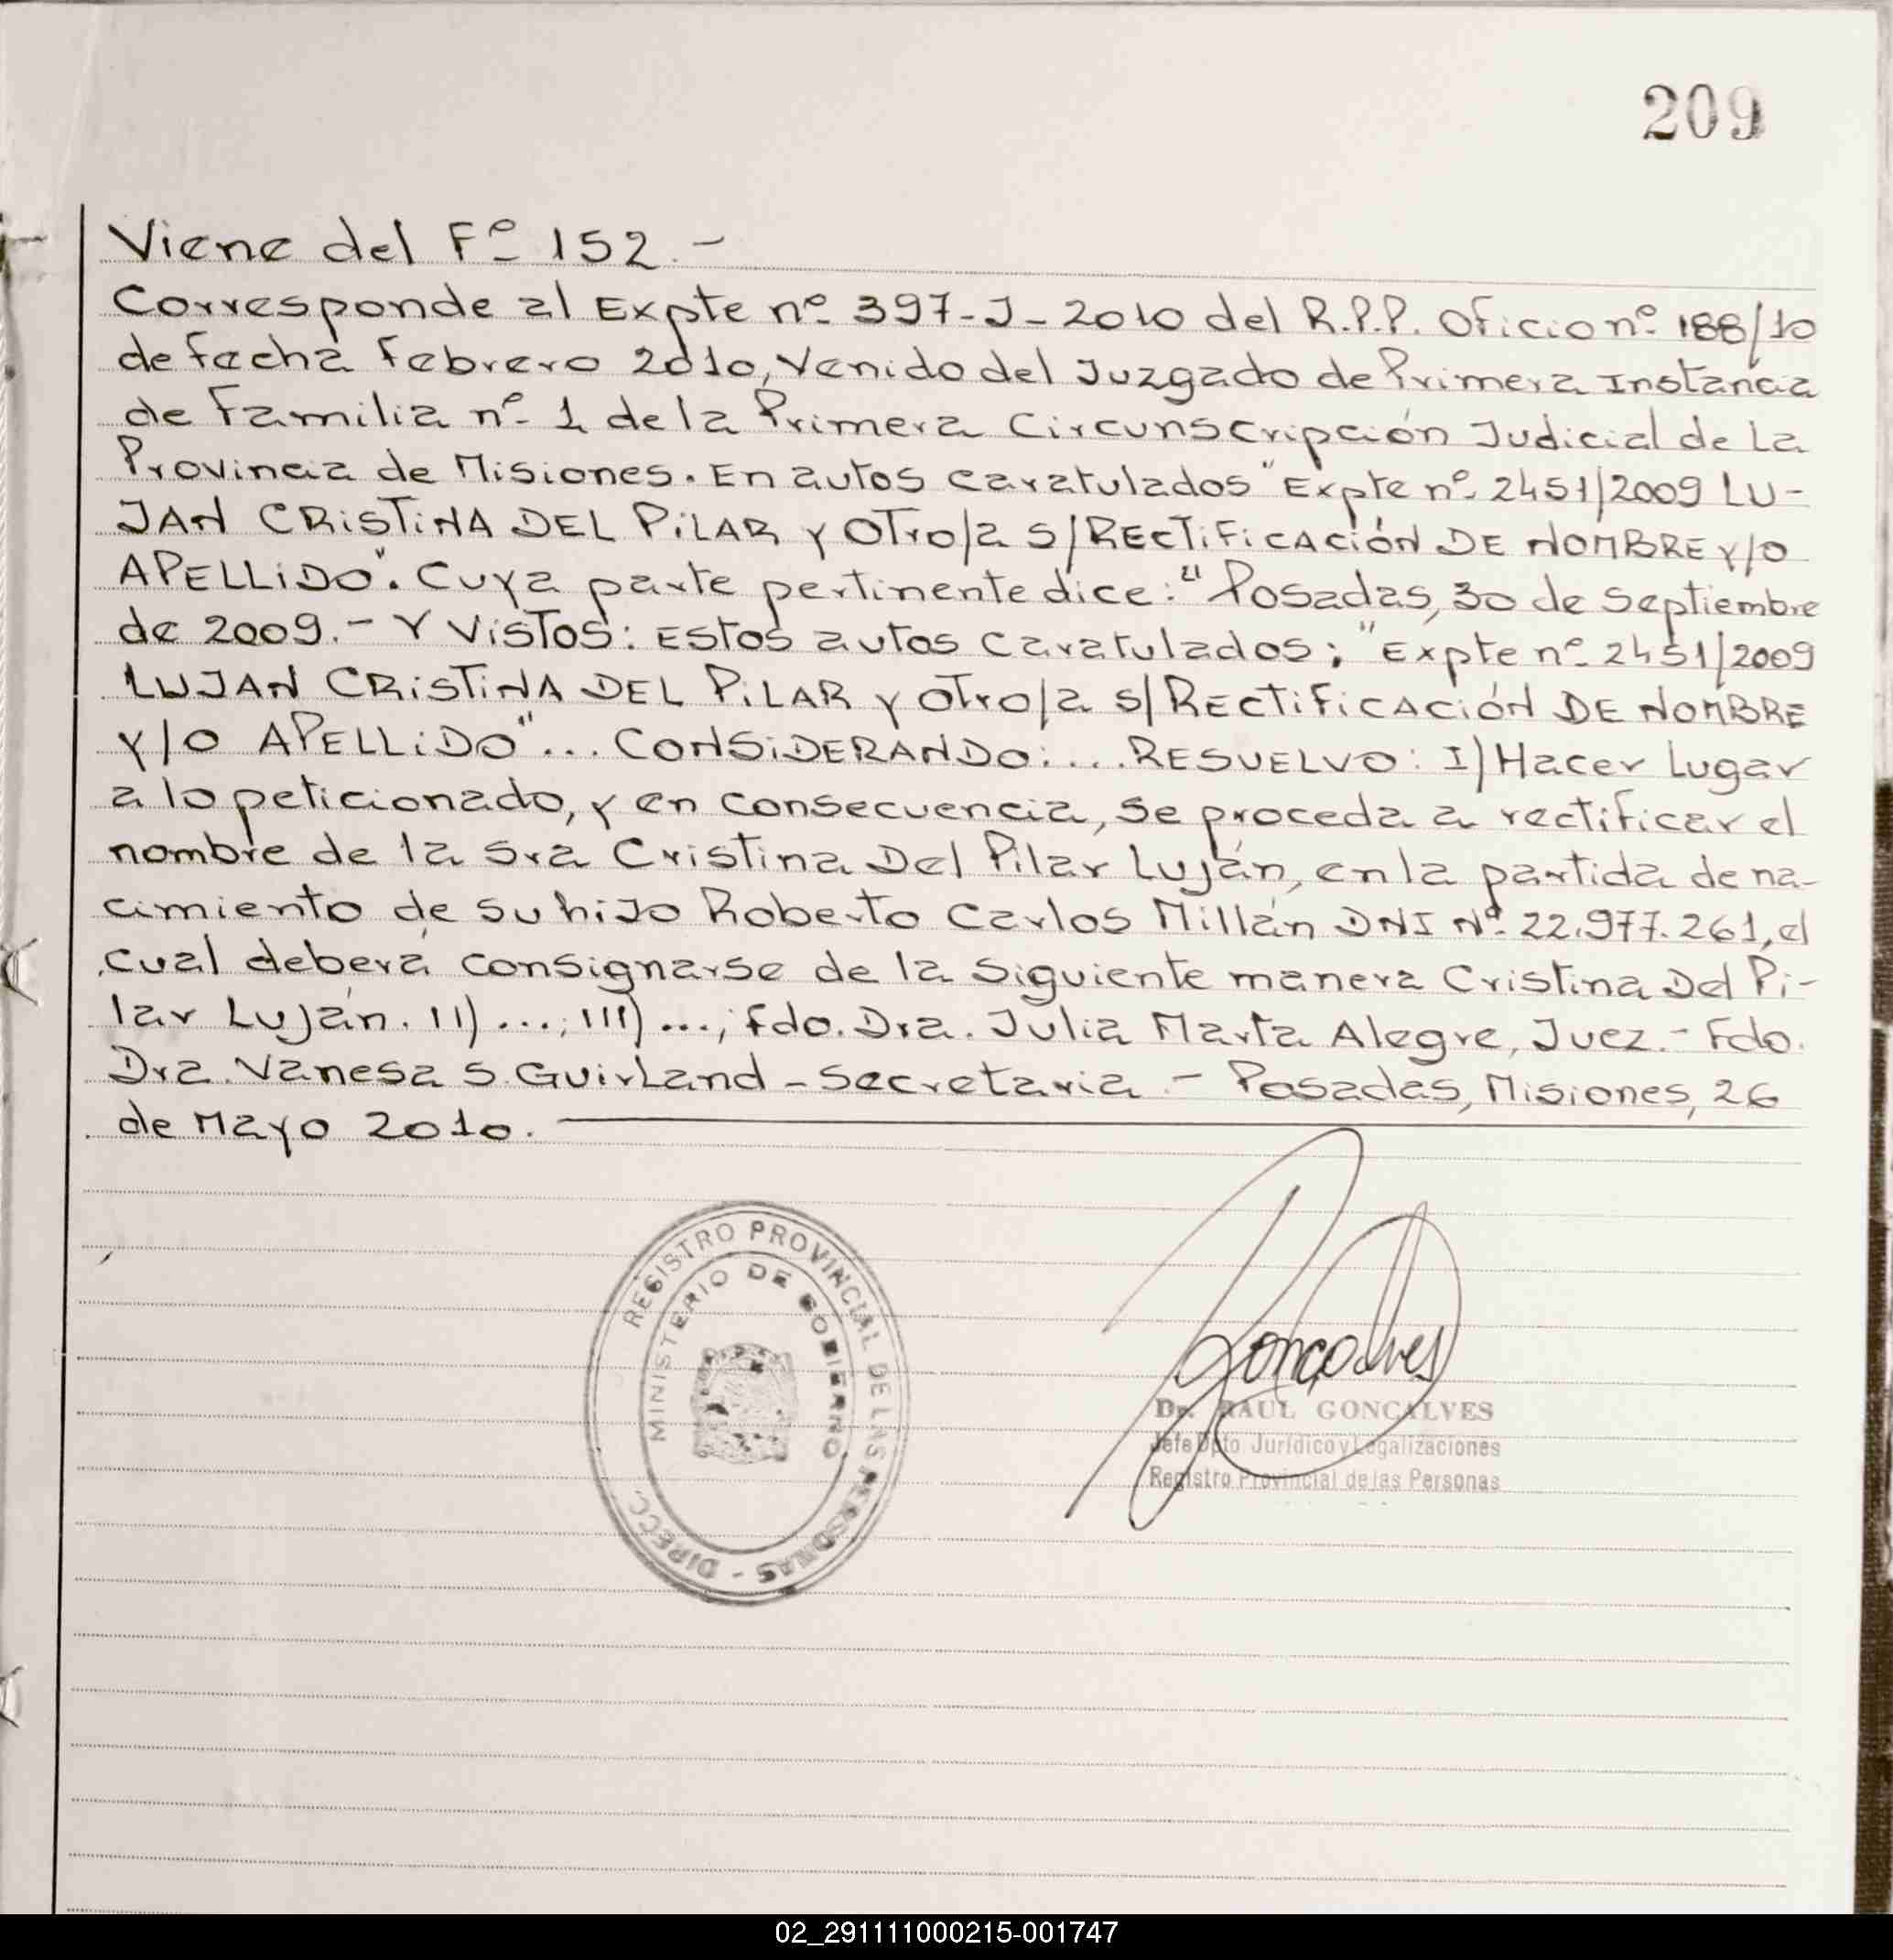 209
Viene del Fº 152.-
Corresponde al Expte nº 397-J-2010 del R.P.P. Oficio nº 188/10
de fecha Febrero 2010, Venido del Juzgado de Primera Instancia
de Familia nº 1 de la Primera Circunscripción Judicial de La
Provincia de Misiones. En autos caratulados "Expte nº 2451/2009 LU-
JAN CRISTINA DEL PILAR Y OTro/a S/RECTIFICACIÓN DE NOMBRE Y/O
APELLIDO". Cuya parte pertinente dice: "Posadas, 30 de Septiembre
de 2009.- Y VISTOS: Estos autos caratulados; "Expte nº 2451/2009
LUJAN CRISTINA DEL PILAR Y OTro/a S/RECTIFICACIÓN DE NOMBRE
Y/O APELLIDO"... CONSIDERANDO:... RESUELVO: I) Hacer Lugar
a lo peticionado, y en consecuencia, se proceda a rectificar el
nombre de la Sra Cristina Del Pilar Luján, en la partida de na-
cimiento de su hijo Roberto Carlos Millán DNI Nº 22.977.261, el
cual deberá consignarse de la siguiente manera Cristina Del Pi-
lar Luján. II) ...; III) ..., Fdo. Dra. Julia Marta Alegre, Juez.- Fdo.
Dra. Vanesa S. Guirland - Secretaria.- Posadas, Misiones, 26
de Mayo 2010.
REGISTRO PROVINCIAL DE LAS PERSONAS - DIRECC.
MINISTERIO DE GOBIERNO
Goncalves
Dr. RAUL GONCALVES
Jefe Dpto Jurídico y Legalizaciones
Registro Provincial de las Personas
02_291111000215-001747